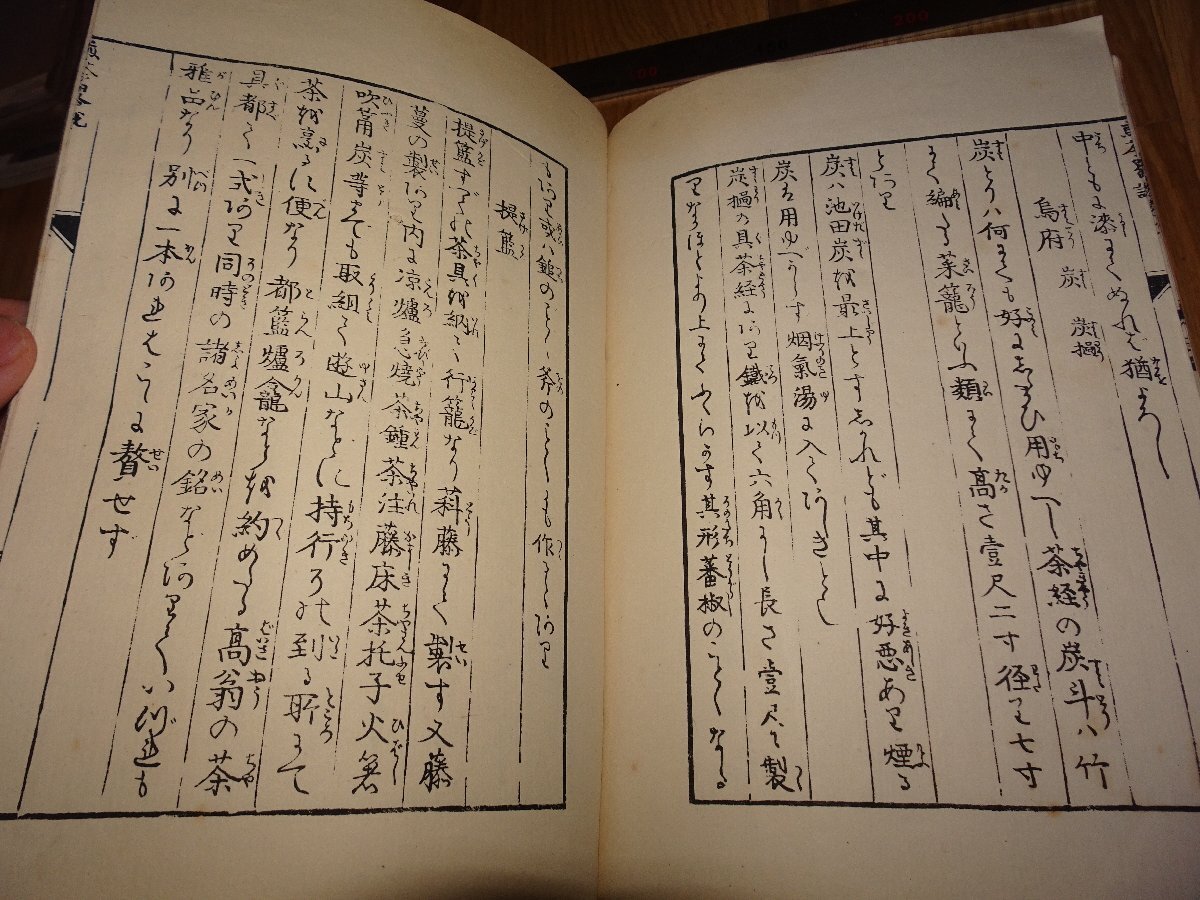 中にも漆にてぬれば猶よろし
烏府 炭 炭檛
炭とりハ何にても好にしたがひ用ゆべし茶経の炭斗ハ竹
にて編たる菜籠といふ類にて高さ壹尺二寸径り七寸
とあり
炭ハ池田炭を最上とすしかれども其中に好悪あり煙る
炭は用ゆべからす烟氣湯に入てあしきとし
炭檛の具茶経にあり鐵を以て六角にし長さ壹尺に製
りなるほとよの上にて
其形蕃椒のことくなる
もあり或ハ鎚のことく斧のことくも作るとあり
提籃
提籃すべて茶具を納る行籠なり
藤にて製す又藤
蔓の製あり内に凉爐急燒茶鍾茶注藤床茶托子火箸
吹筩炭等まても取組て遊山なとに持行の到る所にて
茶を烹るに便なり都籃爐龕なとを約めたる高翁の茶
具都て一式あり同時の諸名家の銘などありていづれも
雅品なり別に一本あればこゝに贅せず